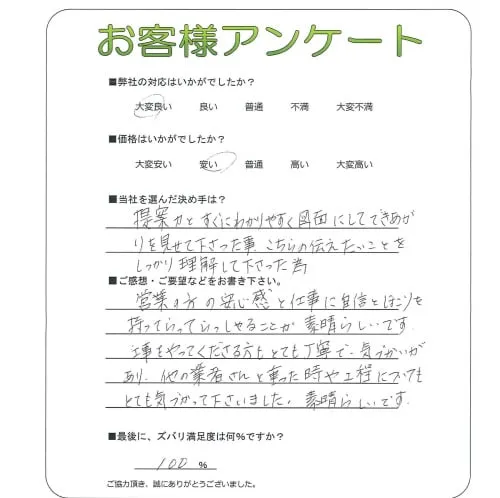 お客様アンケート
■弊社の対応はいかがでしたか？
大変良い 良い 普通 不満 大変不満
■価格はいかがでしたか？
大変安い 安い 普通 高い 大変高い
■当社を選んだ決め手は？
提案力とすぐにわかりやすく図面にしてできあが
りを見せて下さった事、こちらの伝えたいことを
しっかり理解して下さった為
■ご感想・ご要望などをお書き下さい。
営業の方の安心感と仕事に自信とほこりを
持ってらっしゃることが素晴らしいです。
工事をやってくださる方もとても丁寧で、気づかいが
あり、他の業者さんと重った時や工程についても
とても気づかって下さいました。素晴らしいです。
■最後に、ズバリ満足度は何%ですか？
100 %
ご協力頂き、誠にありがとうございました。